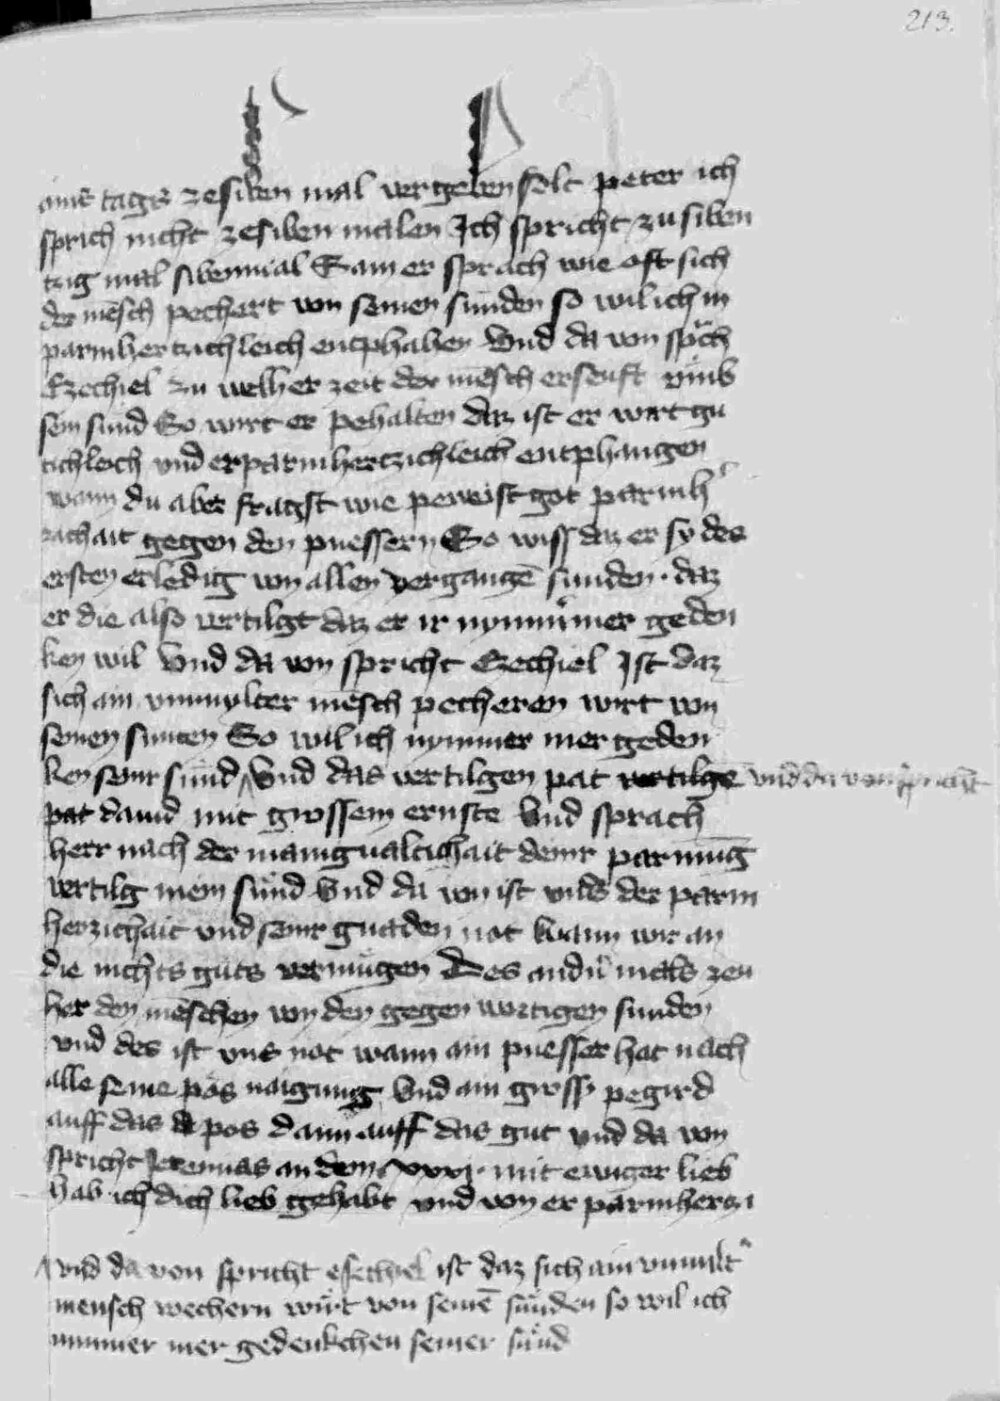 213.
ains tags zesiben mal vergeben solt peter ich
sprich nicht zesiben malen Ich spricht zu siben
tzig mal sibenmal Sam er sprach wie oft sich
der mēsch pechert von seinen sünden so wil ich in
parmhertzichleich entphahen Vnd da von sprach
Ezechiel zu welher zeit der mēsch erseuft vmb
sein sünd So wirt er pehalten daz ist er wirt gü
tichleich vnd erparmhertzichleich entphangen
wann du aber fragst wie peweist got parmh
zichait gegen den puessern So wiss daz er sy des
ersten erledig von allen vergangē sunden. daz
er die also vertilgt daz er ir nymmer mer geden
ken wil Vnd da von spricht Ezechiel Ist daz
sich ain vnmylter mēsch pecheren wirt von
seinen sunten So wil ich nymmer mer geden
ken seinr sünd Vnd das vertilgen pat vertilgē vnd da von spricht
pat dauid mit grossem ernste Vnd sprach
herr nach der manigualtichait deinr parmūg
vertilg mein sünd Vnd da von ist vns der parm
herzichait vnd seinr gnaden not wann wir an
die nichts guts vermügen Des andern mals zeu
her den mēschen von den gegen wurtigen sunden
vnd des ist vns not wann ain puesser hat nach
alle seine pös naigung Vnd ain gross pegird
auff das pos dann auff das gut vnd da von
spricht Jeremias an dem xxxj. mit ewiger lieb
hab ich dich lieb gehabt vnd von er parmherzi
vnd da von spricht esechiel ist daz sich ain vnmilt
mensch wechern würt von seinē sünden so wil ich
nimmer mer gedenkchen seiner sünd